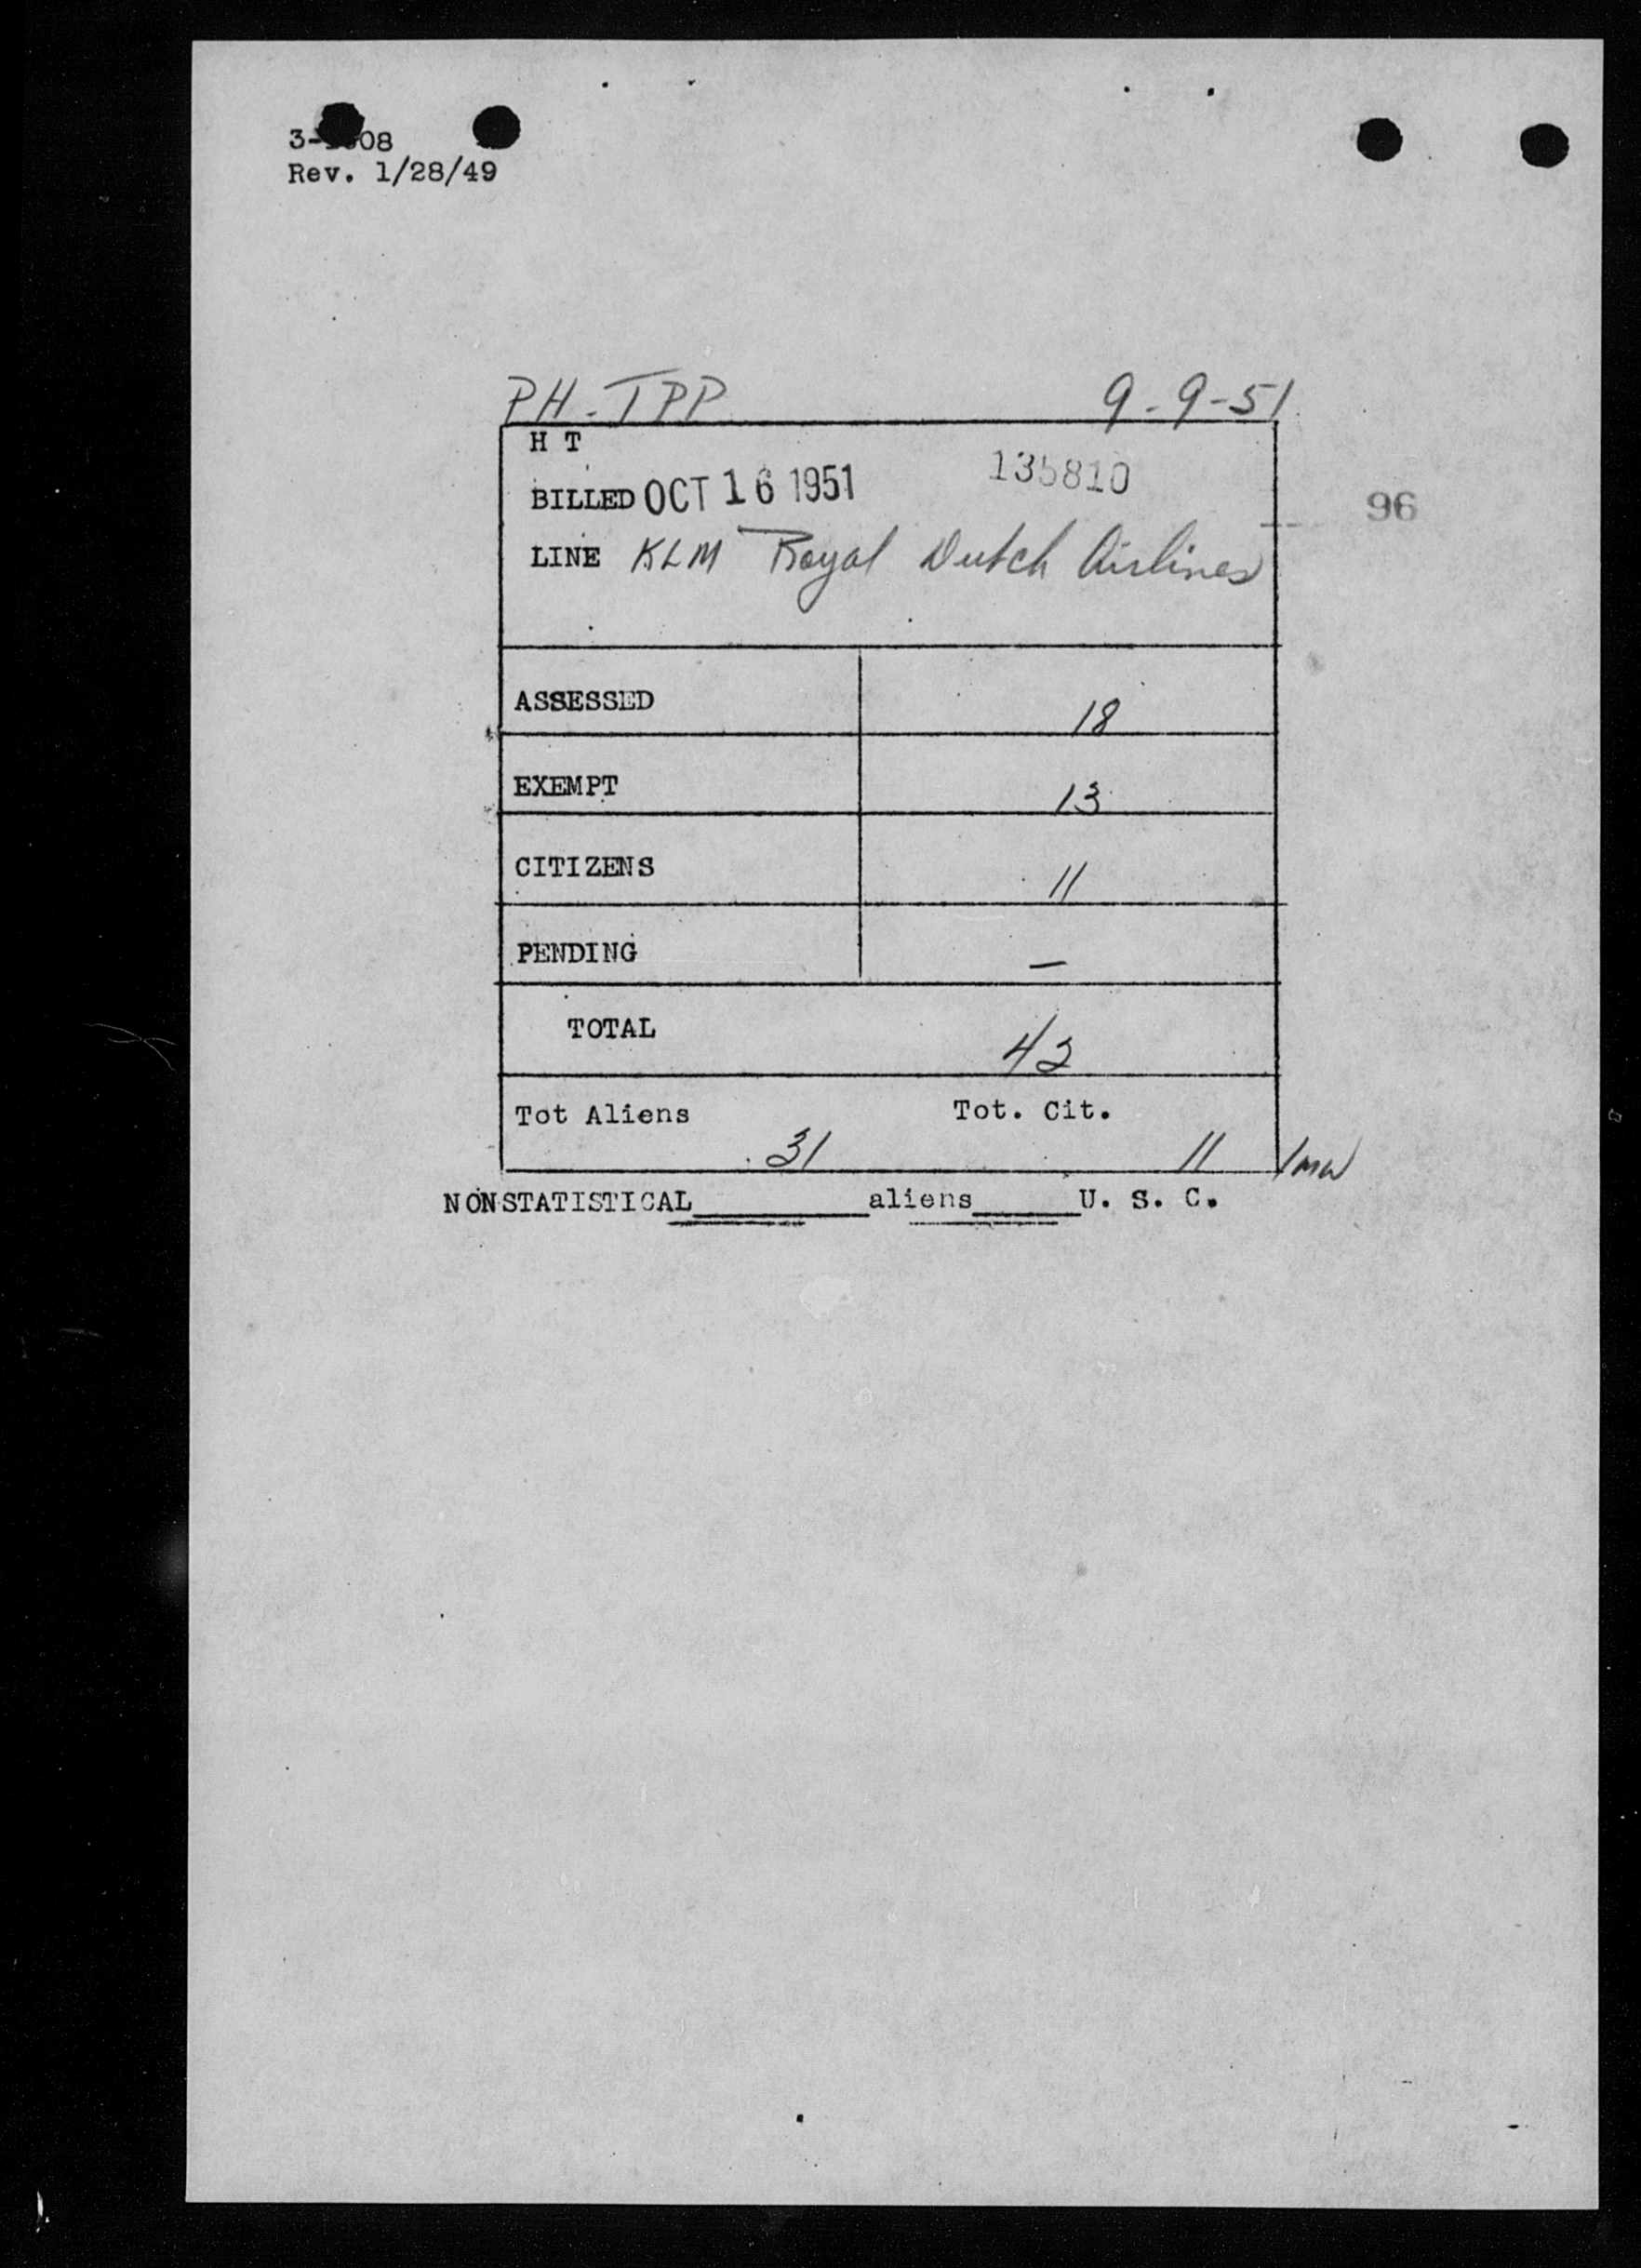 Rev. 1/28/49
PH-TPP 9-9-51
H T
BILLED OCT 16 1951 135810
96
LINE KLM Royal Dutch Airlines
ASSESSED 18
EXEMPT 13
CITIZENS 11
PENDING —
TOTAL 42
Tot Aliens Tot. Cit.
31 11
NONSTATISTICAL________aliens_____U. S. C.